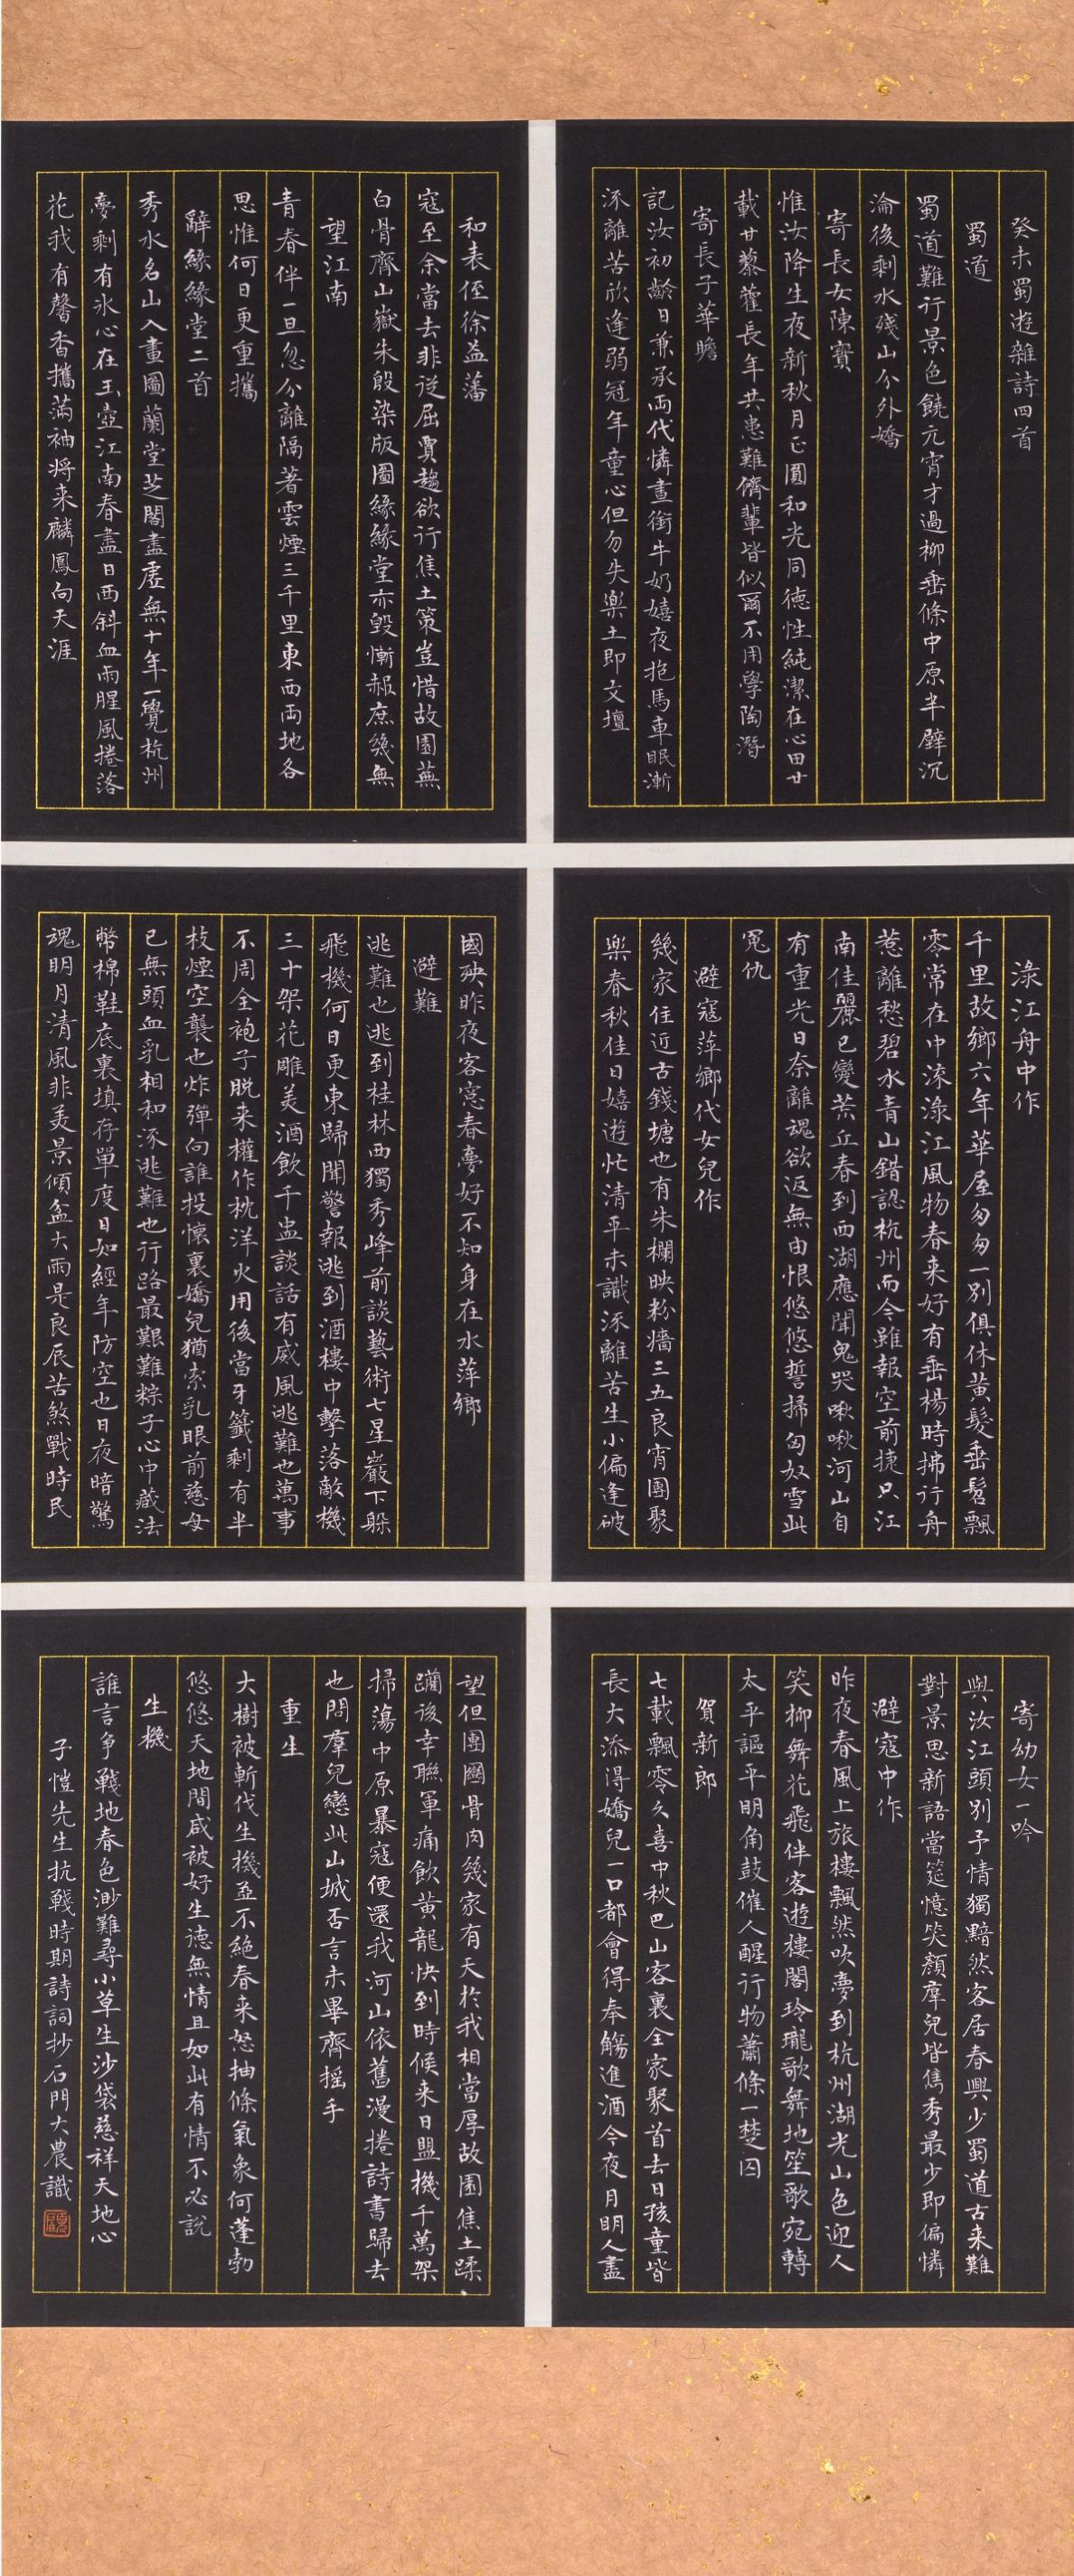 癸未蜀遊雜詩四首
蜀道
蜀道難行景色饒元宵才過柳垂條中原半壁沉
淪後剩水殘山分外嬌
寄長女陳寶
惟汝降生夜新秋月正圓和光同德性純潔在心田廿
載甘藜藿長年共患難儕輩皆似爾不用學陶潛
寄長子華瞻
記汝初齡日兼承兩代憐晝銜牛奶嬉夜抱馬車眠漸
漸離苦欣逢弱冠年童心但勿失樂土即文壇
和表侄徐益藩
寇至余當去非從屈賈趨欲行焦土策豈惜故園蕪
白骨齊山嶽朱殷染版圖緣緣堂亦毀慚赧庶幾無
望江南
青春伴一旦忽分離隔著雲煙三千里東西兩地各
思惟何日更重攜
辭緣緣堂二首
秀水名山入畫圖蘭堂芝閣盡虛無十年一覺杭州
夢剩有冰心在玉壺江南春盡日西斜血雨腥風捲落
花我有馨香攜滿袖將來麟鳳向天涯
淥江舟中作
千里故鄉六年華屋匆匆一別俱休黃髮垂髫飄
零常在中流淥江風物春來好有垂楊時拂行舟
惹離愁碧水青山錯認杭州而今雖報空前捷只江
南佳麗已變荒丘春到西湖應聞鬼哭啾啾河山自
有重光日奈離魂欲返無由恨悠悠誓掃匈奴雪此
冤仇
避寇萍鄉代女兒作
幾家住近古錢塘也有朱欄映粉牆三五良宵團聚
樂春秋佳日嬉遊忙清平未識流離苦生小偏逢破
國殃昨夜客窓春夢好不知身在水萍鄉
避難
逃難也逃到桂林西獨秀峰前談藝術七星巖下躲
飛機何日更東歸聞警報逃到酒樓中擊落敵機
三十架花雕美酒飲千盅談話有威風逃難也萬事
不周全袍子脱来權作枕洋火用後當牙籤剩有半
枝煙空襲也炸彈向誰投懷裏嬌兒猶索乳眼前慈母
已無頭血乳相和流逃難也行路最艱難粽子心中藏法
幣棉鞋底裏填存單度日如經年防空也日夜暗驚
魂明月清風非美景傾盆大雨是良辰苦煞戰時民
寄幼女一吟
與汝江頭別予情獨黯然客居春興少蜀道古来難
對景思新語當筵憶笑顏羣兒皆雋秀最少即偏憐
避寇中作
昨夜春風上旅樓飄然吹夢到杭州湖光山色迎人
笑柳舞花飛伴客遊樓閣玲瓏歌舞地笙歌宛轉
太平謳平明角鼓催人醒行物蕭條一楚囚
賀新郎
七載飄零久喜中秋巴山客裏全家聚首去日孩童皆
長大添得嬌兒一口都會得奉觴進酒今夜月明人盡
望但團圞骨肉幾家有天於我相當厚故園焦土蹂
躪後幸聯軍痛飲黃龍快到時候来日盟機千萬架
掃蕩中原暴寇便還我河山依舊漫捲詩書歸去
也問羣兒戀此山城否言未畢齊搖手
重生
大樹被斬伐生機並不絕春来怒抽條氣象何蓬勃
悠悠天地間咸被好生德無情且如此有情不必說
生機
誰言爭戰地春色渺難尋小草生沙袋慈祥天地心
子愷先生抗戰時期詩詞抄石門大農識